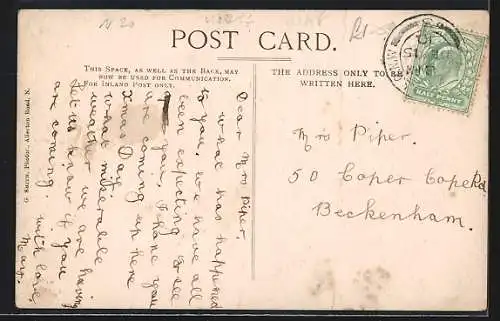 N 20
POST CARD.
THIS SPACE, AS WELL AS THE BACK, MAY
NOW BE USED FOR COMMUNICATION.
FOR INLAND POST ONLY.
THE ADDRESS ONLY TO BE
WRITTEN HERE.
HALFPENNY
G. Smith, Photo., Allerton Road, N.
Dear Mrs Piper.
what has happened
to you, we have all
been expecting to see
you, I hope you
are coming up here
Xmas Day.
what miserable
weather we are having
Let us know if you
are coming. with love
May.
Mrs Piper.
50 Coper Cope Rd
Beckenham.